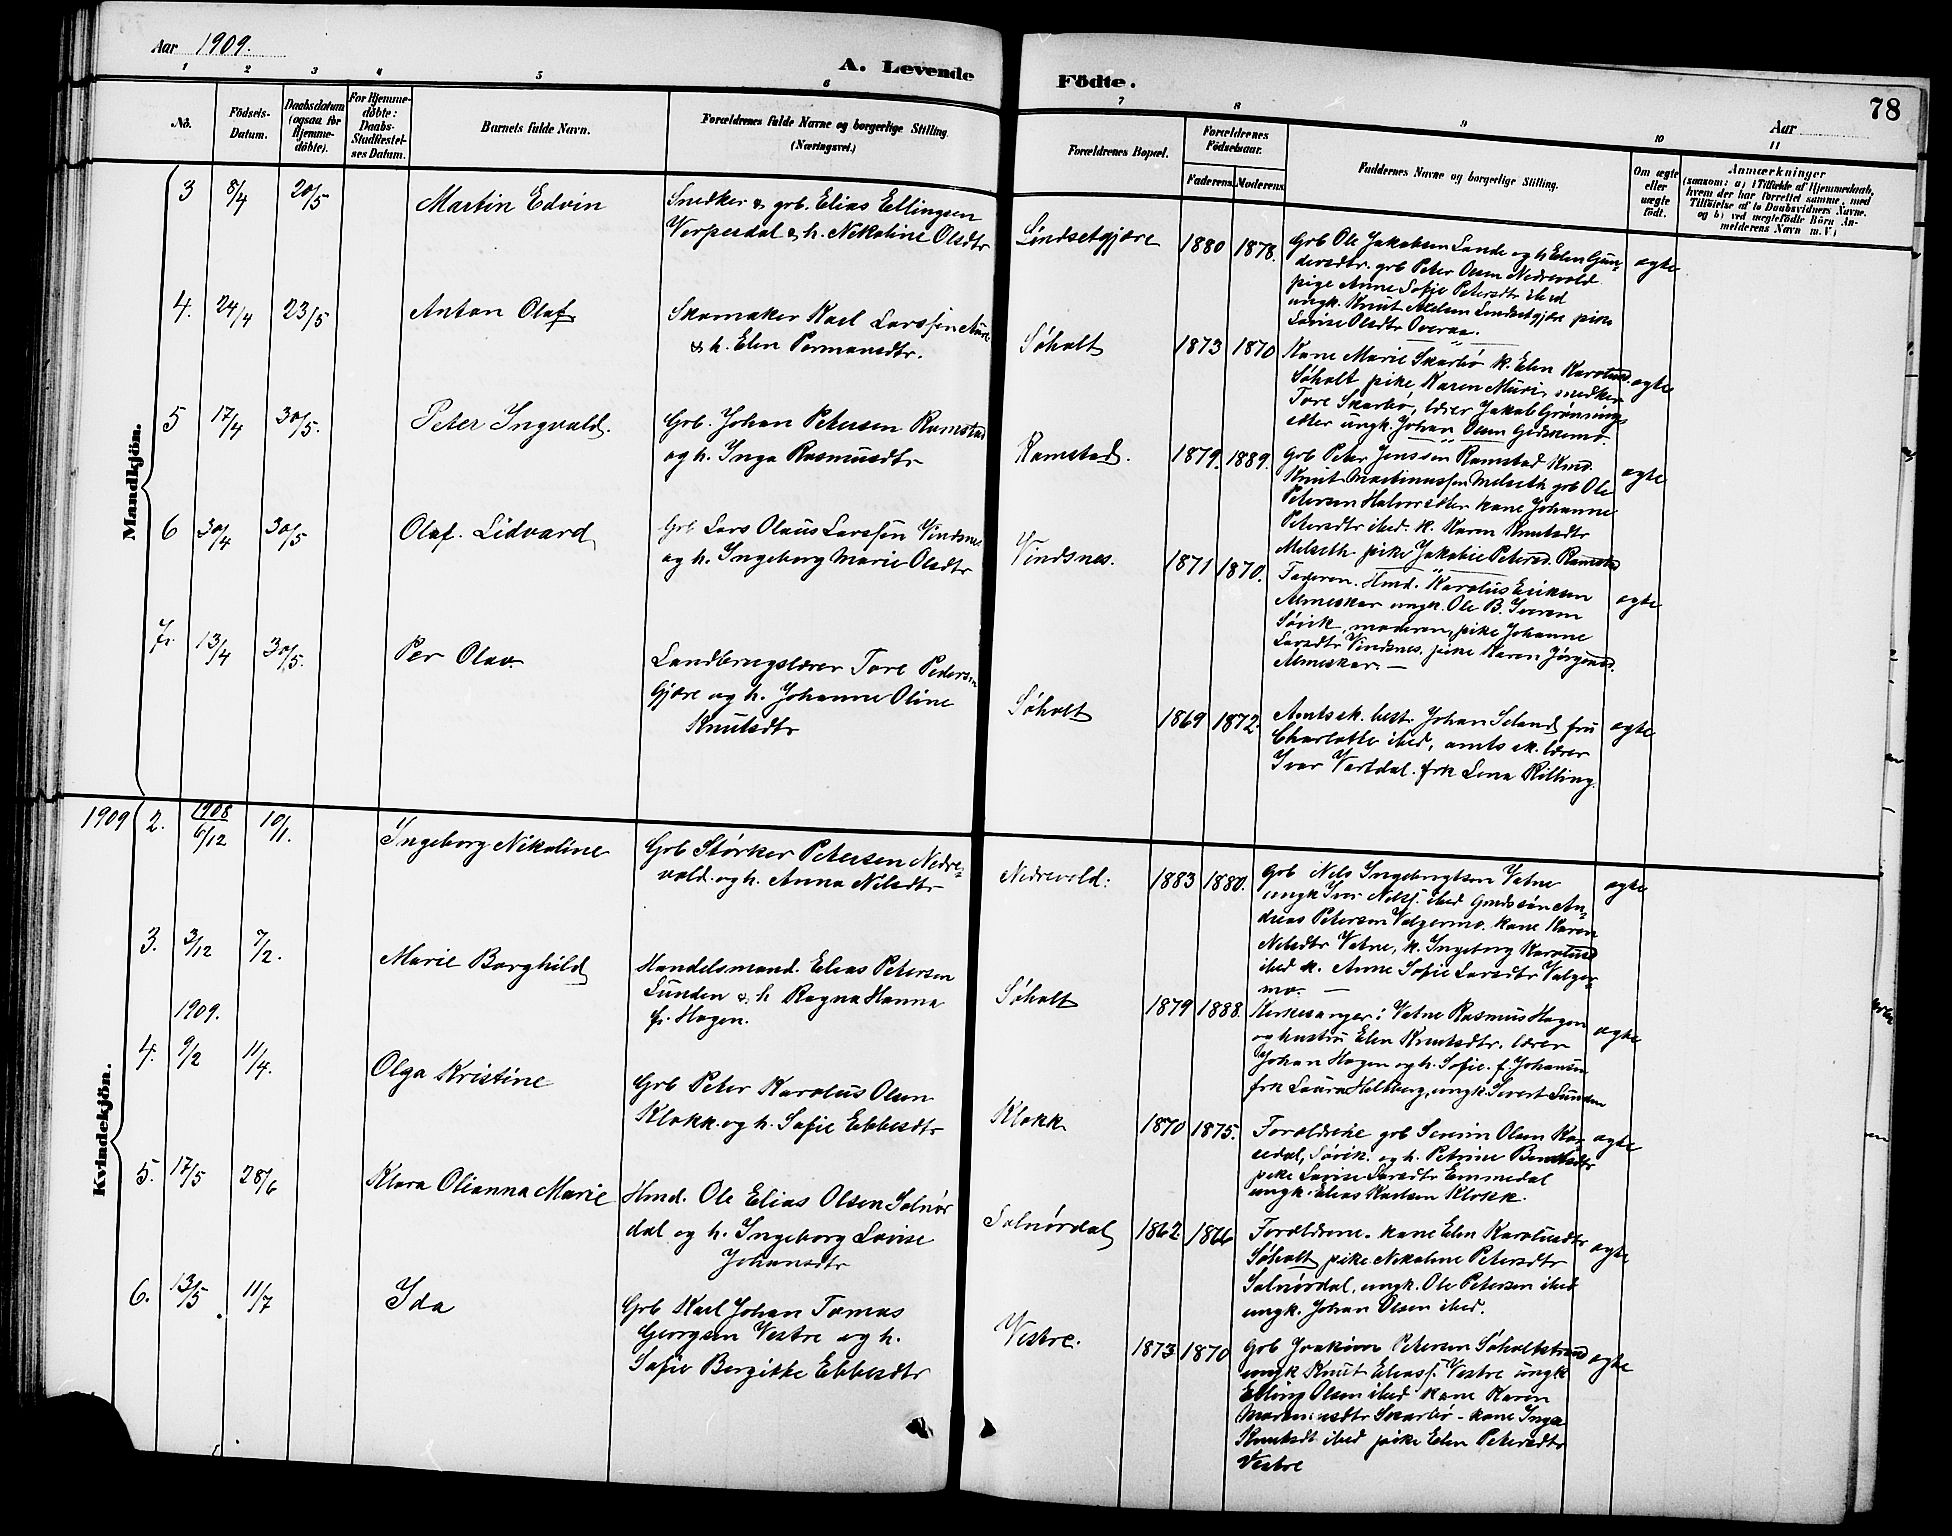 Aar 1909.
A. Levende Födte.
78
Aar
1 2 3 4 5 6 7 8 9 10 11
No.
Födsels-
Datum.
Daabsdatum
(ogsaa for
Hjemme-
döbte).
For Hjemme-
döbte:
Daabs-
Stadfæstel-
ses Datum.
Barnets fulde Navn.
Forældrenes fulde Navne og borgerlige Stilling.
(Næringsvei.)
Forældrenes Bopæl.
Forældrenes
Födselsaar.
Faderens. Moderens.
Faddernes Navne og borgerlige Stilling.
Om ægte
eller
uægte
födt.
Anmærkninger
(saasom: a) i Tilfælde af Hjemmedaab,
hvem der har forrettet samme, med
Tilföielse af to Daabsvidners Navne.
og b) ved uægtefödte Börn An-
melderens Navn m. V.)
Mandkjön.
3 8/4 20/5 Martin Edvin
Snedker & grb. Elias Ellingsen
Verpesdal & h. Nikoline Olsdtr
Lindsetgjære 1880 1878.
Grb Ole Jakobsen Lande og h Elen Gun-
dersdtr. grb Peter Olsen Nedrevold
pige Anne Sofie Petersdtr ibid
ungk. Knut Lindsetgjære pike
Lovise Olsdtr Overaa.
ægte
4. 24/4 23/5 Anton Olaf
Skomaker Karl Larssen Aure
& h. Elen Permansdtr.
Søholt 1873 1870
Kone Marie Skarbø k. Elen Karolusd.
Søholt pike Karen Muri, snedker
Tore Skarbø, lærer Jakob Grønnings-
æter ungk. Johan Olsen Gidskemo.
ægte
5 17/4 30/5. Peter Ingvald.
Grb. Johan Petersen Ramstad
og h. Inga Rasmusdtr
Ramstad. 1879. 1889.
Grb Peter Jenssen Ramstad Kmd.
Knut Martinussen Melseth grb Ole
Petersen kone Johanne
Petersdtr ibid. k. Karen Knutsdtr
Melseth pike Jakobie Petersd. Ramstad
ægte
6 30/4 30/5 Olaf. Lidvard
Grb Lars Olaus Larssen Vindsnes
og h. Ingeborg Marie Olsdtr
Vindsnes. 1871 1870.
Faderen. Hmd. Karolus Eriksen
Almeskar ungk. Ole B. Iversen
Søvik, moderen, pike Johanne
Larsdtr Vindsnes. pike Karen Jørgensd.
Almeskar. –
ægte
7. 13/4 30/5. Per Olav.
Landbrugslærer Tore Pedersen
Gjære og h. Johanne Oline
Knutsdtr
Søholt 1869 1872.
Amtssk. best. Johan Seland fru
Charlotte ibid, amtssk. lærer
Ivar Vartdal. frk Lena Rilling.
ægte
Kvindekjön.
1909 2. 1908
6/12 10/1. Ingeborg Nikoline
Grb Størker Petersen Nedre-
vold. og h. Anna Nilsdtr
Nedrevold. 1883 1880.
Grb Nils Ingebrigtsen Vatne
ungk Iver Nilss. ibid Grudssøn An-
dreas Petersen Valgermo. kone Karen
Nilsdtr Vatne, k. Ingeborg Karolusd
ibid k. Anne Sofie Larsdtr Valger-
mo. –
ægte
3. 3/12 7/2. Marie Borghild
Handelsmand. Elias Petersen
Lunden & h Ragna Hanna
f. Hagen.
Søholt 1879 1888.
Kirkesanger i Vatne Rasmus Hagen
og hustru Elen Knutsdtr. lærer
Johan Hagen og h. Sofie. f. Johansen
frk Laura Holtberg, ungk Sivert Lunden
ægte
1909.
4. 9/2 11/4. Olga Kristine
Grb Peter Karolus Olsen
Klokk. og h. Sofie Ebbesdtr
Klokk 1870 1875.
Forældrene grb Severin Olsen
Søvik. og h. Petrine
pike Lovise Larsdtr Emmedal
ungk. Elias Karlsen Klokk.
ægte
5. 17/5 28/6 Klara Olianna Marie
Hmd. Ole Elias Olsen Solnør
dal og h. Ingeborg Lovise
Johansdtr
Solnørdal 1862. 1866
Forældrene. kone Elen Karolusdtr
Søholt pike Nikoline Petersdtr
Solnørdal, ungk. Ole Petersen ibid
ungk. Johan Olsen ibid.
ægte
6. 13/5 11/7 Ida
Grb Karl Johan Tomas
Georgsen Vestre og h.
Sofie Bergitte Ebbesdtr
Vestre. 1873 1870
Grb Joakim Petersen Søholtstrand
ungk Knut Eliass. Vestre ungk
Elling Olsen ibid kone Karen
Skarbø – kone Inga
Knutsdt ibid pike Elen Petersdtr
Vestre
ægte